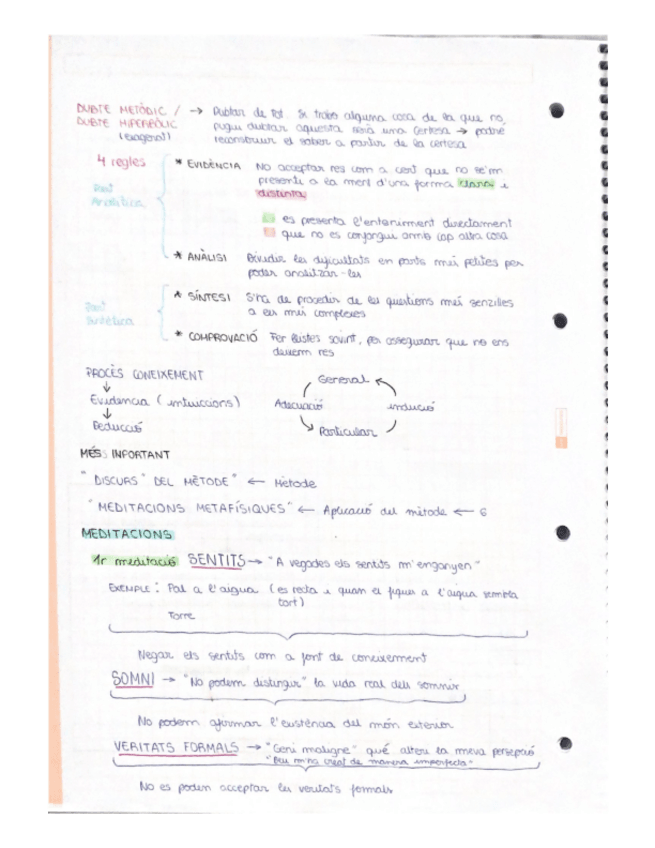 DUBTE METÒDIC / → Dubtar de tot. Si trobo alguna cosa de la que no,
DUBTE HIPERBÒLIC pugui dubtar aquesta serà una certesa → podré
(exagerat) reconstruir el saber a partir de la certesa
4 regles
Part Analítica
* EVIDÈNCIA No acceptar res com a cert que no se'm
presenti a la ment d'una forma clara i
distinta
es presenta l'enteniment directament
que no es confongui amb cap altra cosa
* ANÀLISI Dividir les dificultats en parts més petites per
poder analitzar-les
Part Sintètica
* SÍNTESI S'ha de procedir de les qüestions més senzilles
a les més complexes
* COMPROVACIÓ Fer llistes sovint, per assegurar que no ens
deixem res
PROCÈS CONEIXEMENT
↓
Evidència (intuicions)
↓
Deducció
General
Adequació inducció
Particular
MÉS IMPORTANT
"DISCURS" DEL MÈTODE" ← Mètode
"MEDITACIONS METAFÍSIQUES" ← Aplicació del mètode ← 6
MEDITACIONS
1r meditació SENTITS → "A vegades els sentits m'enganyen"
EXEMPLE: Pal a l'aigua (es recta i quan el fiques a l'aigua sembla
tort)
Torre
Negar els sentits com a font de coneixement
SOMNI → "No podem distingir" la vida real dels somnis
No podem afirmar l'existència del món exterior
VERITATS FORMALS → "Geni maligne" què altera la meva percepció
"Deu m'ha creat de manera imperfecta"
No es poden acceptar les veritats formals